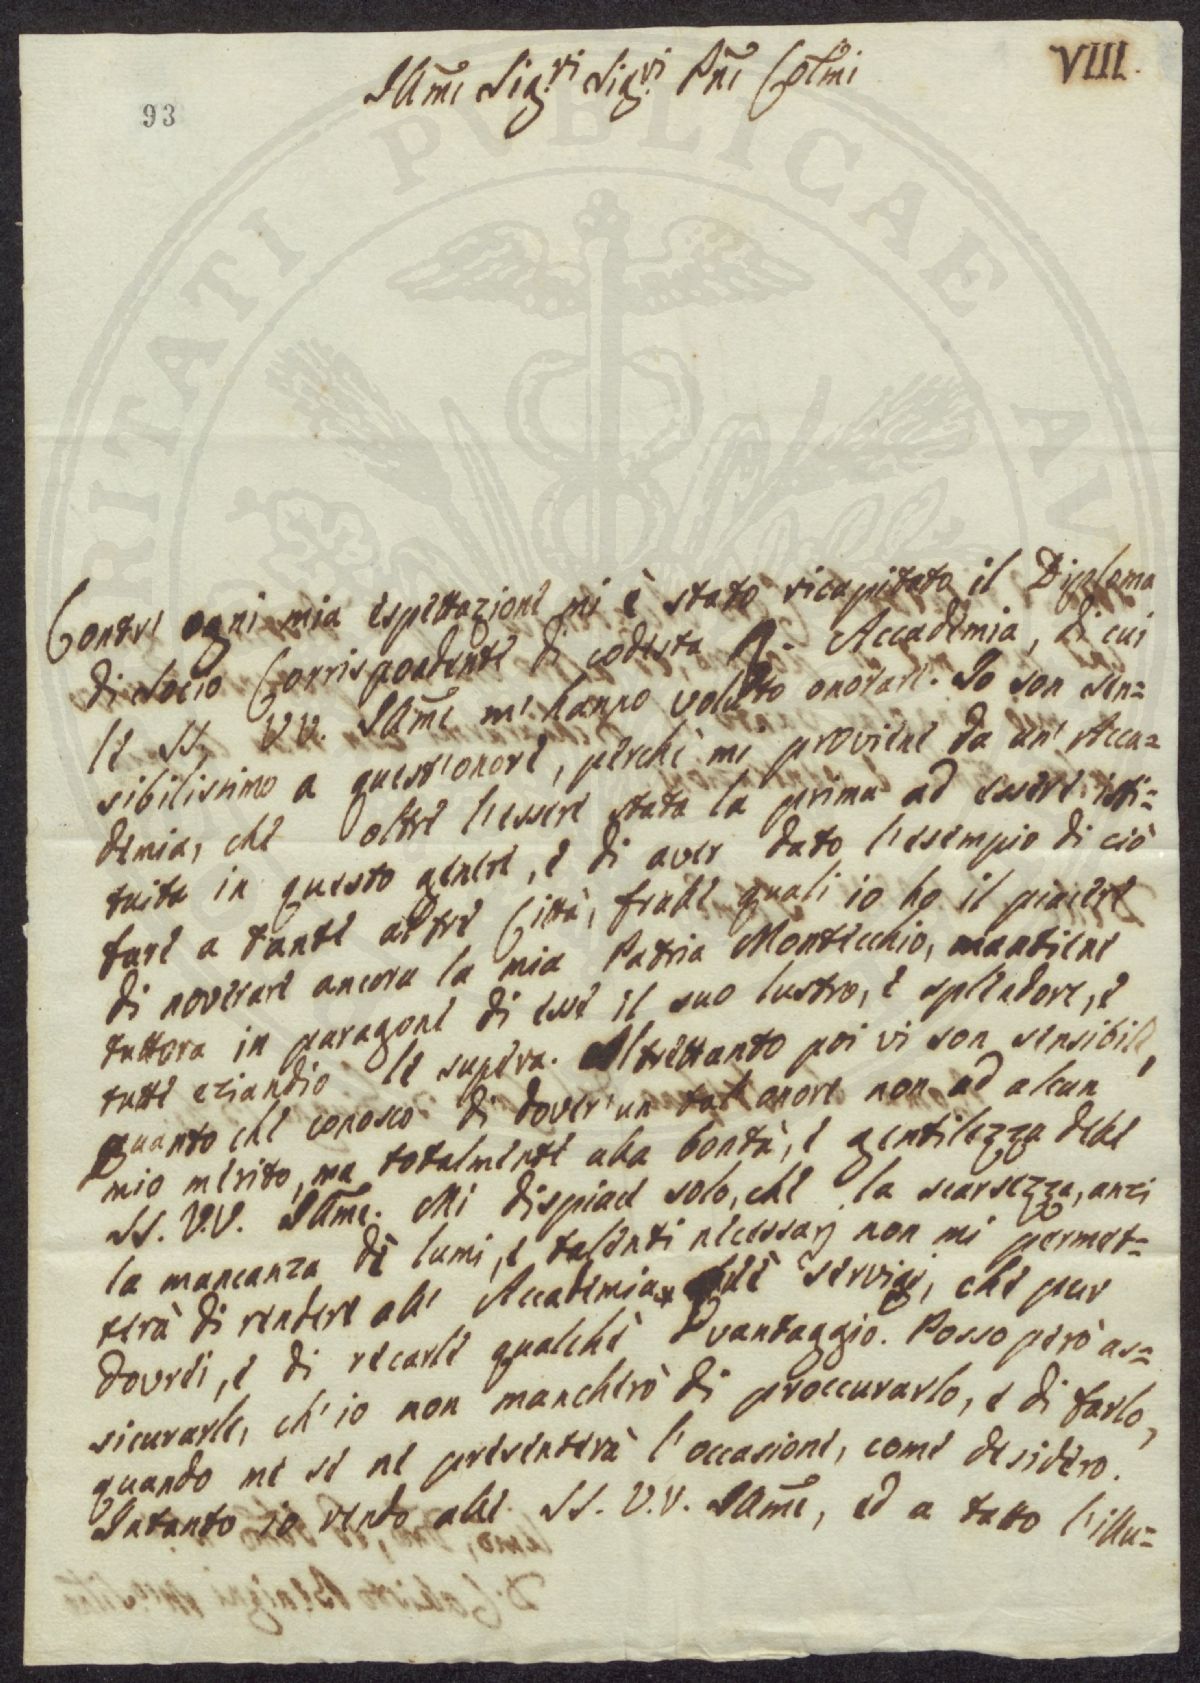 VIII.
Illm̃i Sig.ri Sig.ri Pñi Col̃mi
93
Contro ogni mia espettazione mi è stato ricapitato il Diploma
di Socio Corrispondente di codesta R. Accademia, di cui
le SS. VV. Illm̃e m'hanno voluto onorare. Io son sen=
sibilissimo a quest'onore, perchè mi proviene da un'Acca=
demia, che oltre l'essere stata la prima ad essere isti=
tuita in questo genere, e di aver dato l'esempio di ciò
fare a tante altre Città, fralle quali io ho il piacere
di noverare ancora la mia Patria Montecchio, mantiene
tuttora in paragone di esse il suo lustro, e splendore, e
tutte eziandio le supera. Altrettanto poi vi son sensibile,
quanto che conosco di dover'un tal'onore non ad alcun
mio merito, ma totalmente alla bontà, e gentilezza delle
SS. V.V. Illm̃e. Mi dispiace solo, che la scarsezza, anzi
la mancanza di lumi, e talenti necessarj non mi permet=
terà di rendere all'Accademia servigj, che pur
dovrei, e di recarle qualche vantaggio. Posso però as=
sicurarle, ch'io non mancherò di proccurarlo, e di farlo,
quando me se ne presenterà l'occasione, come desidero.
Intanto io rendo alle SS. V.V. Illm̃e, ed a tutto l'illu=
PUBLICAE